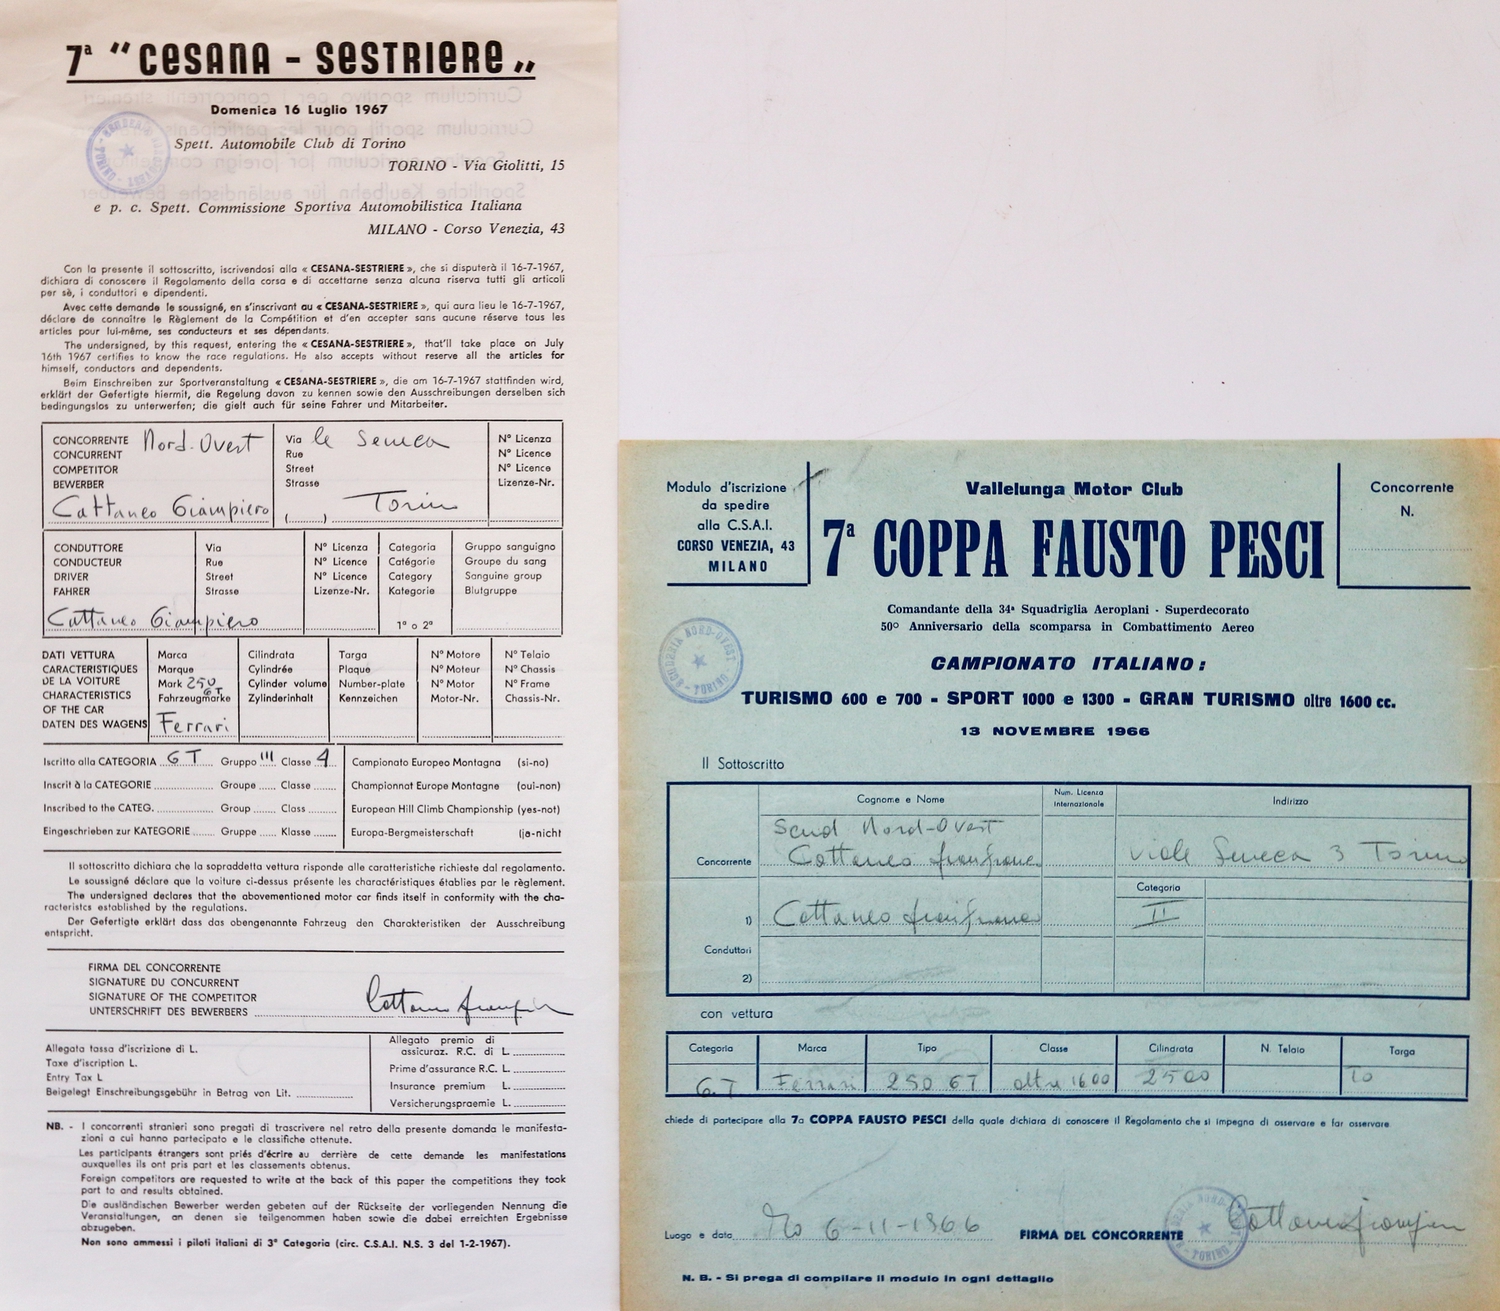 7ª "CESANA - SESTRIERE"
Domenica 16 Luglio 1967
Spett. Automobile Club di Torino
TORINO - Via Giolitti, 15
e p. c. Spett. Commissione Sportiva Automobilistica Italiana
MILANO - Corso Venezia, 43
Con la presente il sottoscritto, iscrivendosi alla « CESANA-SESTRIERE », che si disputerà il 16-7-1967,
dichiara di conoscere il Regolamento della corsa e di accettarne senza alcuna riserva tutti gli articoli
per sè, i conduttori e dipendenti.
Avec cette demande le soussigné, en s'inscrivant au « CESANA-SESTRIERE », qui aura lieu le 16-7-1967,
déclare de connaître le Règlement de la Compétition et d'en accepter sans aucune réserve tous les
articles pour lui-même, ses conducteurs et ses dépendants.
The undersigned, by this request, entering the « CESANA-SESTRIERE », that'll take place on July
16th 1967 certifies to know the race regulations. He also accepts without reserve all the articles for
himself, conductors and dependents.
Beim Einschreiben zur Sportveranstaltung « CESANA-SESTRIERE », die am 16-7-1967 stattfinden wird,
erklärt der Gefertigte hiermit, die Regelung davon zu kennen sowie den Ausschreibungen derselben sich
bedingungslos zu unterwerfen; die gielt auch für seine Fahrer und Mitarbeiter.
CONCORRENTE Nord-Ovest Via le Seneca N° Licenza
CONCURRENT Rue N° Licence
COMPETITOR Street N° Licence
BEWERBER Strasse Lizenze-Nr.
Cattaneo Giampiero (......) Torino
CONDUTTORE Via N° Licenza Categoria Gruppo sanguigno
CONDUCTEUR Rue N° Licence Catégorie Groupe du sang
DRIVER Street N° Licence Category Sanguine group
FAHRER Strasse Lizenze-Nr. Kategorie Blutgruppe
Cattaneo Giampiero 1° o 2°
DATI VETTURA Marca Cilindrata Targa N° Motore N° Telaio
CARACTERISTIQUES Marque Cylindrée Plaque N° Moteur N° Chassis
DE LA VOITURE Mark 250 Cylinder volume Number-plate N° Motor N° Frame
CHARACTERISTICS Fahrzeugmarke GT Zylinderinhalt Kennzeichen Motor-Nr. Chassis-Nr.
OF THE CAR
DATEN DES WAGENS Ferrari
Iscritto alla CATEGORIA GT Gruppo III Classe 4 Campionato Europeo Montagna (si-no)
Inscrit à la CATEGORIE Groupe Classe Championnat Europe Montagne (oui-non)
Inscribed to the CATEG. Group Class European Hill Climb Championship (yes-not)
Eingeschrieben zur KATEGORIE Gruppe Klasse Europa-Bergmeisterschaft (ja-nicht
Il sottoscritto dichiara che la sopraddetta vettura risponde alle caratteristiche richieste dal regolamento.
Le soussigné déclare que la voiture ci-dessus présente les charactéristiques établies par le règlement.
The undersigned declares that the abovementioned motor car finds itself in conformity with the cha-
racteristcs established by the regulations.
Der Gefertigte erklärt dass das obengenannte Fahrzeug den Charakteristiken der Ausschreibung
entspricht.
FIRMA DEL CONCORRENTE
SIGNATURE DU CONCURRENT
SIGNATURE OF THE COMPETITOR
UNTERSCHRIFT DES BEWERBERS
Allegata tassa d'iscrizione di L.
Taxe d'iscription L.
Entry Tax L
Beigelegt Einschreibungsgebühr in Betrag von Lit.
Allegato premio di
assicuraz. R.C. di L.
Prime d'assurance R.C. L.
Insurance premium L.
Versicherungspraemie L.
NB. - I concorrenti stranieri sono pregati di trascrivere nel retro della presente domanda le manifesta-
zioni a cui hanno partecipato e le classifiche ottenute.
Les participants étrangers sont priés d'écrire au derrière de cette demande les manifestations
auxquelles ils ont pris part et les classements obtenus.
Foreign competitors are requested to write at the back of this paper the competitions they took
part to and results obtained.
Die ausländischen Bewerber werden gebeten auf der Rückseite der vorliegenden Nennung die
Veranstaltungen, an denen sie teilgenommen haben sowie die dabei erreichten Ergebnisse
abzugeben.
Non sono ammessi i piloti italiani di 3ª Categoria (circ. C.S.A.I. N.S. 3 del 1-2-1967).
Modulo d'iscrizione
da spedire
alla C.S.A.I.
CORSO VENEZIA, 43
MILANO
Vallelunga Motor Club
7ª COPPA FAUSTO PESCI
Concorrente
N.
Comandante della 34ª Squadriglia Aeroplani - Superdecorato
50° Anniversario della scomparsa in Combattimento Aereo
SCUDERIA NORD-OVEST
TORINO
CAMPIONATO ITALIANO:
TURISMO 600 e 700 - SPORT 1000 e 1300 - GRAN TURISMO oltre 1600 cc.
13 NOVEMBRE 1966
Il Sottoscritto
Cognome e Nome Num. Licenza Internazionale Indirizzo
Scud Nord-Ovest
Concorrente Cattaneo Viale Seneca 3 Torino
Categoria
1) Cattaneo II
Conduttori
2)
con vettura
Categoria Marca Tipo Classe Cilindrata N. Telaio Targa
G.T Ferrari 250 GT oltre 1600 2500 To
chiede di partecipare alla 7a COPPA FAUSTO PESCI della quale dichiara di conoscere il Regolamento che si impegna di osservare e far osservare
Luogo e data To 6-11-1966 FIRMA DEL CONCORRENTE
N. B. - Si prega di compilare il modulo in ogni dettaglio